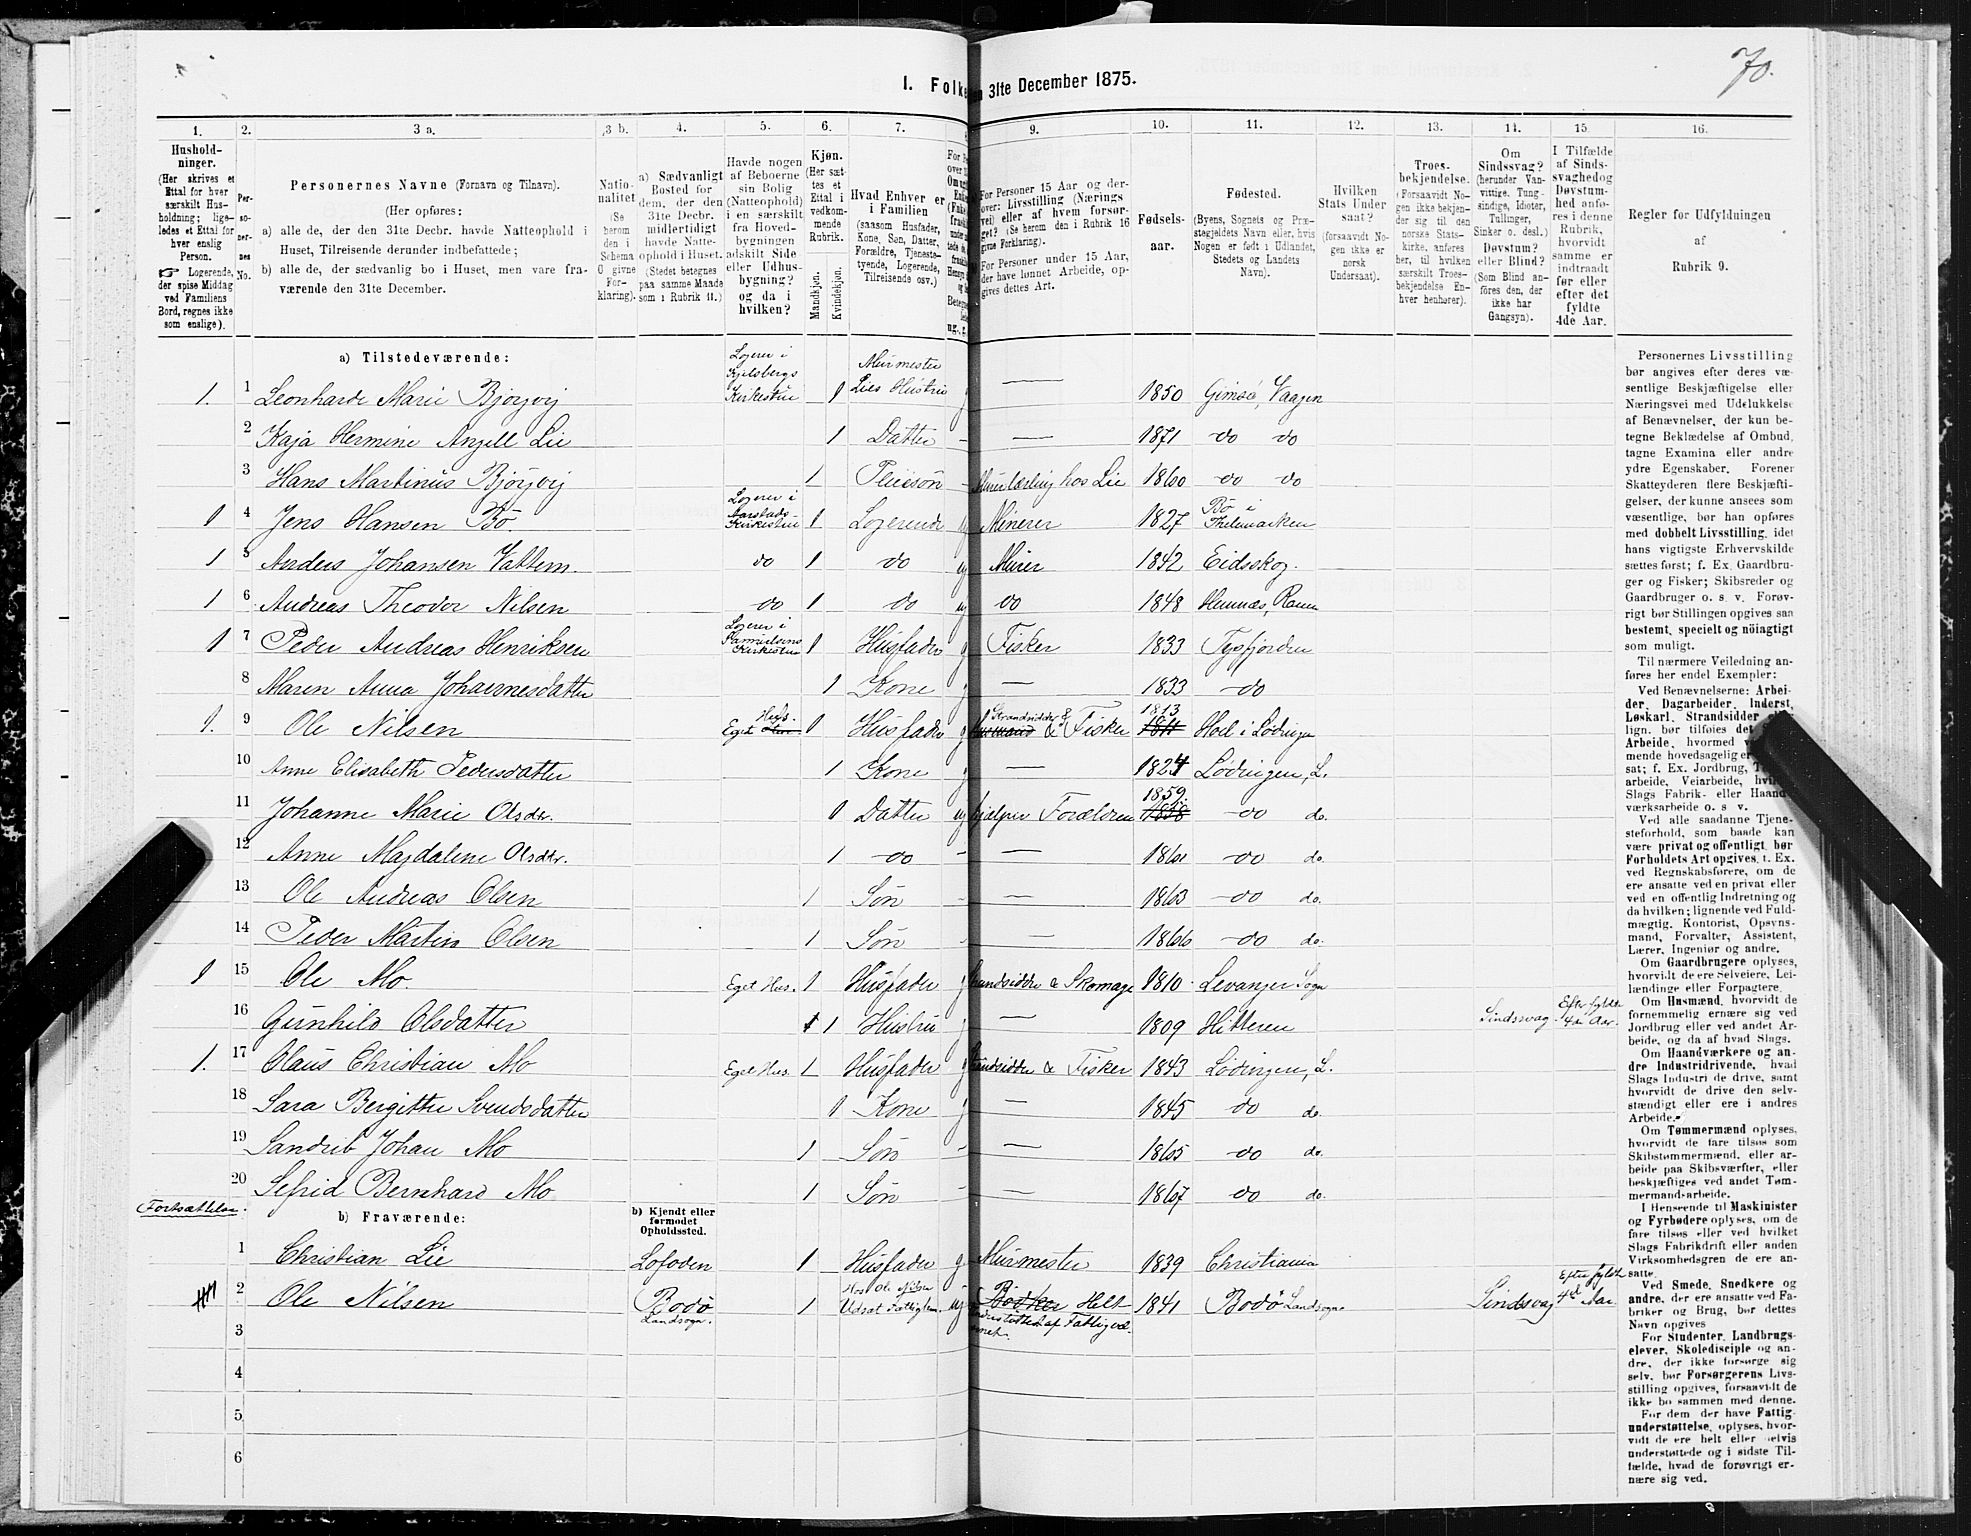 70.
1. Folke en 31te December 1875.
1. 2. 3 a. 3 b. 4. 5. 6. 7. 9. 10. 11. 12. 13. 14. 15. 16.
Hushold-
ninger.
(Her skrives et
Ettal for hver
særskilt Hus-
holdning; lige-
ledes et Ettal for
hver enslig
Person.
Logerende,
der spise Middag
ved Familiens
Bord, regnes ikke
som enslige).
Per-
so-
ner-
nes
No.
Personernes Navne (Fornavn og Tilnavn).
(Her opføres:
a) alle de, der den 31te Decbr. havde Natteophold i
Huset, Tilreisende derunder indbefattede;
b) alle de, der sædvanlig bo i Huset, men vare fra-
værende den 31te December.
Natio-
nalitet
(Se
herom
den i
Schema
O givne
For-
klaring).
a) Sædvanligt
Bosted for
dem, der den
31te Decbr.
midlertidigt
havde Natte-
ophold i Huset.
(Stedet betegnes
paa samme Maade
som i Rubrik 11.)
Havde nogen
af Beboerne
sin Bolig
(Natteophold)
i en særskilt
fra Hoved-
bygningen
adskilt Side
eller Udhus-
bygning?
og da i
hvilken?
Kjøn.
(Her sæt-
tes et
Ettal i
vedkom-
mende
Rubrik.
Mandkjøn.
Kvindekjøn.
Hvad Enhver er
i Familien
(saasom Husfader,
Kone, Søn, Datter,
Forældre, Tjeneste-
tyende, Logerende,
Tilreisende osv.)
For Personer 15 Aar og der-
over: Livsstilling (Nærings
vei) eller af hvem forsør-
get? (Se herom den i Rubrik 16
givne Forklaring).
For Personer under 15 Aar,
der have lønnet Arbeide, op-
gives dettes Art.
Fødsels-
aar.
Fødested.
(Byens, Sognets og Præ-
stegjeldets Navn eller, hvis
Nogen er født i Udlandet,
Stedets og Landets
Navn).
Hvilken
Stats Under
saat?
(forsaavidt No-
gen ikke er
norsk
Undersaat).
Troes-
bekjendelse.
(Forsaavidt No-
gen ikke bekjen-
der sig til den
norske Stats-
kirke, anføres
her, til hvilken
særskilt Troes-
bekjendelse En-
hver henhører).
Om
Sindssvag?
(herunder Van-
vittige, Tung-
sindige, Idioter,
Tullinger,
Sinker o. desl.)
Døvstum?
eller Blind?
(Som Blind an-
føres den, der
ikke har
Gangsyn).
I Tilfælde
af Sinds-
svaghed og
Døvstum-
hed anfø-
res i denne
Rubrik,
hvorvidt
samme er
indtraadt
før eller
efter det
fyldte
4de Aar.
Regler for Udfyldningen
af
Rubrik 9.
a) Tilstedeværende:
1. 1 Leonharde Marie Bjørgvig Logerer i Kjelsbergs Kirkestue 1 Murmester Lies Hustru g — 1850 Gimsø, Vaagen
2 Kaja Hermine Angell Lie 1 Datter - — 1871 do do
3 Hans Martinus Bjørgvig 1 Pleiesøn - Murerlærling hos Lie 1860 do do
1 4 Jens Hansen Bö Logerer i Aarstads Kirkestue 1 Logerende ug Minerer 1827 Bø i Thelemarken
1 5 Anders Johansen Vattem. do 1 do ug Murer 1842 Eidsskog.
1 6 Andreas Theodor Nilsen do 1 do ug do 1848 Hemnæs, Ranen
1 7 Peder Andreas Henriksen Logerer i Samuelsens Kirkestue 1 Husfader g Fisker 1833 Tysfjorden
8 Maren Anna Johannesdatter 1 Kone g — 1833 do
1. 9 Ole Nilsen Eget Huus. 1 Husfader g Strandsidder & Husmand & Fisker 1813 1811 Hol i Lødingen
10 Anne Elisabeth Pedersdatter 1 Kone g — 1824 Lødingen, L.
11 Johanne Marie Olsdr. 1 Datter ug hjælper Forældrene 1859. 1858 do do.
12 Anne Magdalene Olsdtr. 1 do - — 1861 do do.
13 Ole Andreas Olsen 1 Søn - — 1863 do do.
14 Peder Martin Olsen 1 Søn - — 1866 do do.
1 15 Ole Mo. Eget Hus. 1 Husfader g Strandsidder & Skomager 1810. Levanger Sogn
16 Gunhild Olsdatter 1 Hustru g — 1809 Hitteren Sindssvag Efter fyldte 4de Aar.
1. 17 Olaus Christian Mo Eget Hus. 1 Husfader g Strandsidder & Fisker 1843 Lødingen, L.
18 Sara Bergitte Svendsdatter 1 Kone g — 1845 do do.
19 Sandrib Johan Mo 1 Søn - — 1865 do do.
20 Sefrid Bernhard Mo 1 Søn - — 1867 do do.
Fortsættelse.
b) Fraværende:
b) Kjendt eller
formodet
Opholdssted.
1 Christian Lie Lofoden 1 Husfader g Murmester 1839 Christiania
2 Ole Nilsen Bodø Landsogn. 1 Hos Ole Nilsen Udsat Fattiglem. ug Bødker Helt understøttet af Fattigvæsenet. 1841 Bodø Landsogn Sindsvag Efter fyldte 4de Aar
3
4
5
6
Personernes Livsstilling
bør angives efter deres væ-
sentlige Beskjæftigelse eller
Næringsvei med Udelukkelse
af Benævnelser, der kun be-
tegne Beklædelse af Ombud,
tagne Examina eller andre
ydre Egenskaber. Forener
Skatteyderen flere Beskjæfti-
gelser, der kunne ansees som
væsentlige, bør han opføres
med dobbelt Livsstilling, idet
hans vigtigste Erhvervskilde
sættes først; f. Ex. Gaardbru-
ger og Fisker; Skibsreder og
Gaardbruger o. s. v. Forøv-
rigt bør Stillingen opgives saa
bestemt, specielt og nöiagtigt
som muligt.
Til nærmere Veiledning an-
føres her endel Exempler:
Ved Benævnelserne: Arbei-
der, Dagarbeider, Inderst,
Løskarl, Strandsidder
lign. bør tilføies det
Arbeide, hvormed
mende hovedsagelig er
sat; f. Ex. Jordbrug,
arbeide, Veiarbeide,
Slags Fabrik- eller Haand-
værksarbeide o. s. v.
Ved alle saadanne Tjene-
steforhold, som baade kan
være privat og offentligt, bør
Forholdets Art opgives, t. Ex.
ved Regnskabsførere, om de
ere ansatte ved en privat eller
ved en offentlig Indretning og
da hvilken; lignende ved Fuld-
mægtig, Kontorist, Opsyns-
mand, Forvalter, Assistent,
Lærer, Ingeniør og andre.
Om Gaardbrugere oplyses,
hvorvidt de ere Selveiere, Lei-
lændinge eller Forpagtere.
Om Husmænd, hvorvidt de
fornemmelig ernære sig ved
Jordbrug eller ved andet Ar-
beide, og da af hvad Slags.
Om Haandværkere og an-
dre Industridrivende, hvad
Slags Industri de drive, samt
hvorvidt de drive den selv-
stændigt eller ere i andres
Arbeide.
Om Tømmermænd oplyses,
hvorvidt de fare tilsøs som
Skibstømmermænd, eller ar-
beide paa Skibsværfter, eller
beskjæftiges ved andet Tøm-
mermandsarbeide.
I Henseende til Maskinister
og Fyrbødere oplyses, om de
fare tilsøs eller ved hvilket
Slags Fabrikdrift eller anden
Virksomhedsgren de ere an-
satte.
Ved Smede, Snedkere og
andre, der ere ansatte ved Fa-
briker og Brug, bør dettes
Navn opgives
For Studenter, Landbrugs-
elever, Skoledisciple og an-
dre, der ikke forsørge sig
selv, bør Forsørgerens Livs-
stilling opgives, forsaavidt de
ikke bo sammen med denne.
For dem der have Fattig-
understøttelse, oplyses, hvor-
vidt de ere helt eller delvis
understøttede og i sidste Til-
fælde, hvad de forøvrigt er-
nære sig ved.